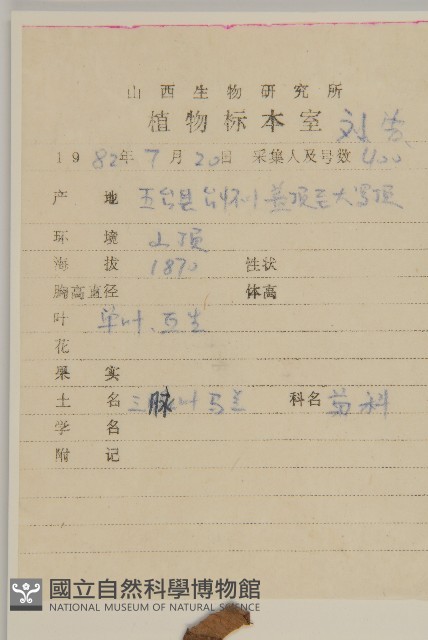 山西生物研究所
植物标本室 刘
1982年7月20日 采集人及号数 400
产地 五台县台怀 顶至大 顶
环境 山顶
海拔 1870 性状
胸高直径 体高
叶 单叶、互生
花
果实
土名 三脉叶马兰 科名 菊科
学名
附记
國立自然科學博物館
NATIONAL MUSEUM OF NATURAL SCIENCE